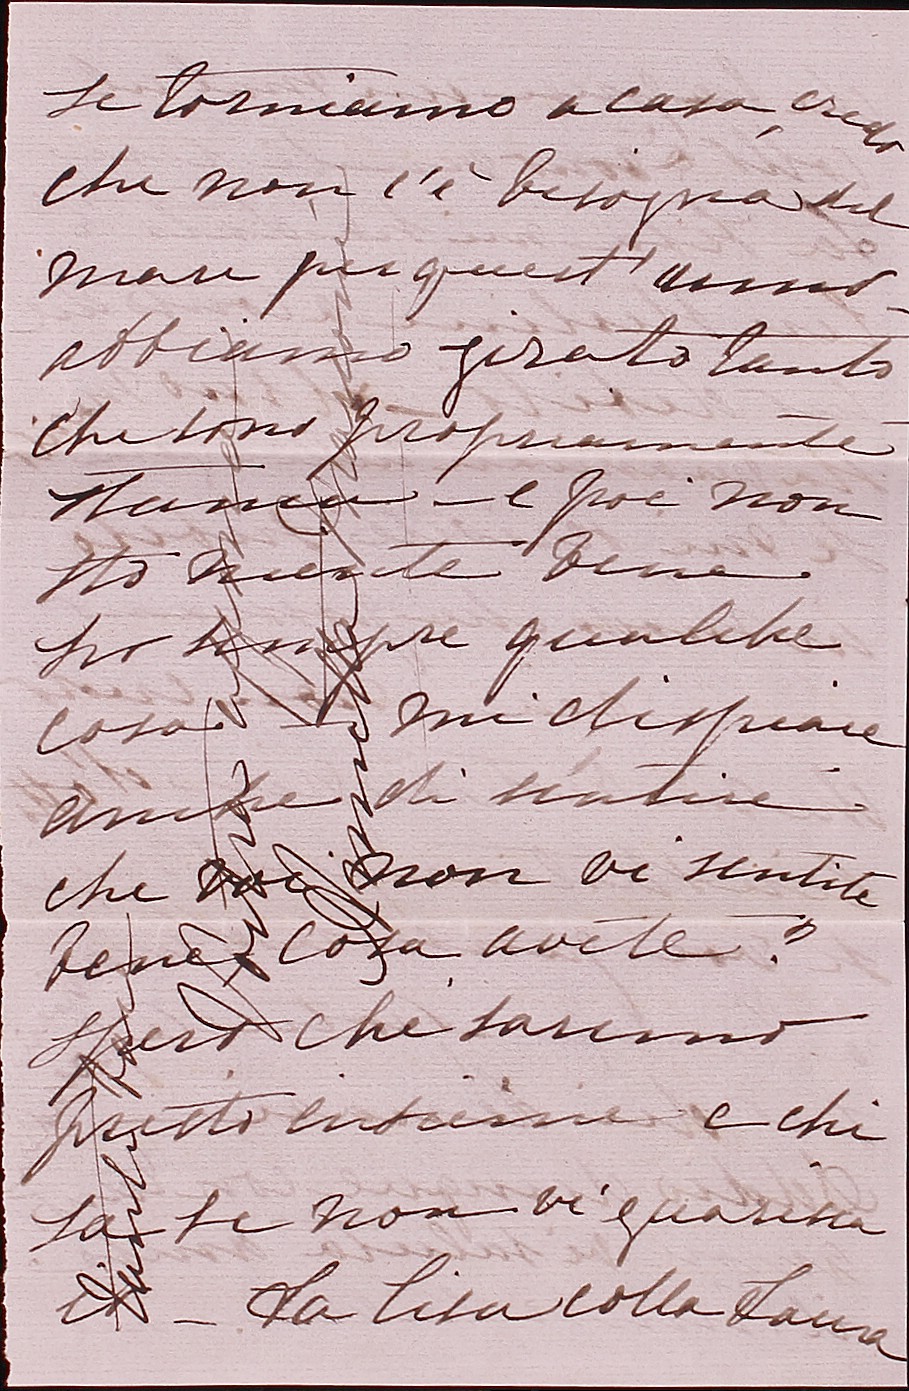 se torniamo a casa, credo
che non c'è bisogna del
mare per quest'anno
abbiamo girato tanto
che sono propriamente
stanca – e poi non
sto niente bene
ho sempre qualche
cosa – mi dispiace
anche di sentire
che voi non vi sentite
bene, cosa avete?
spero che saremo
presto insieme e chi
sa se non vi guarirà
– La Lisa colla Laura